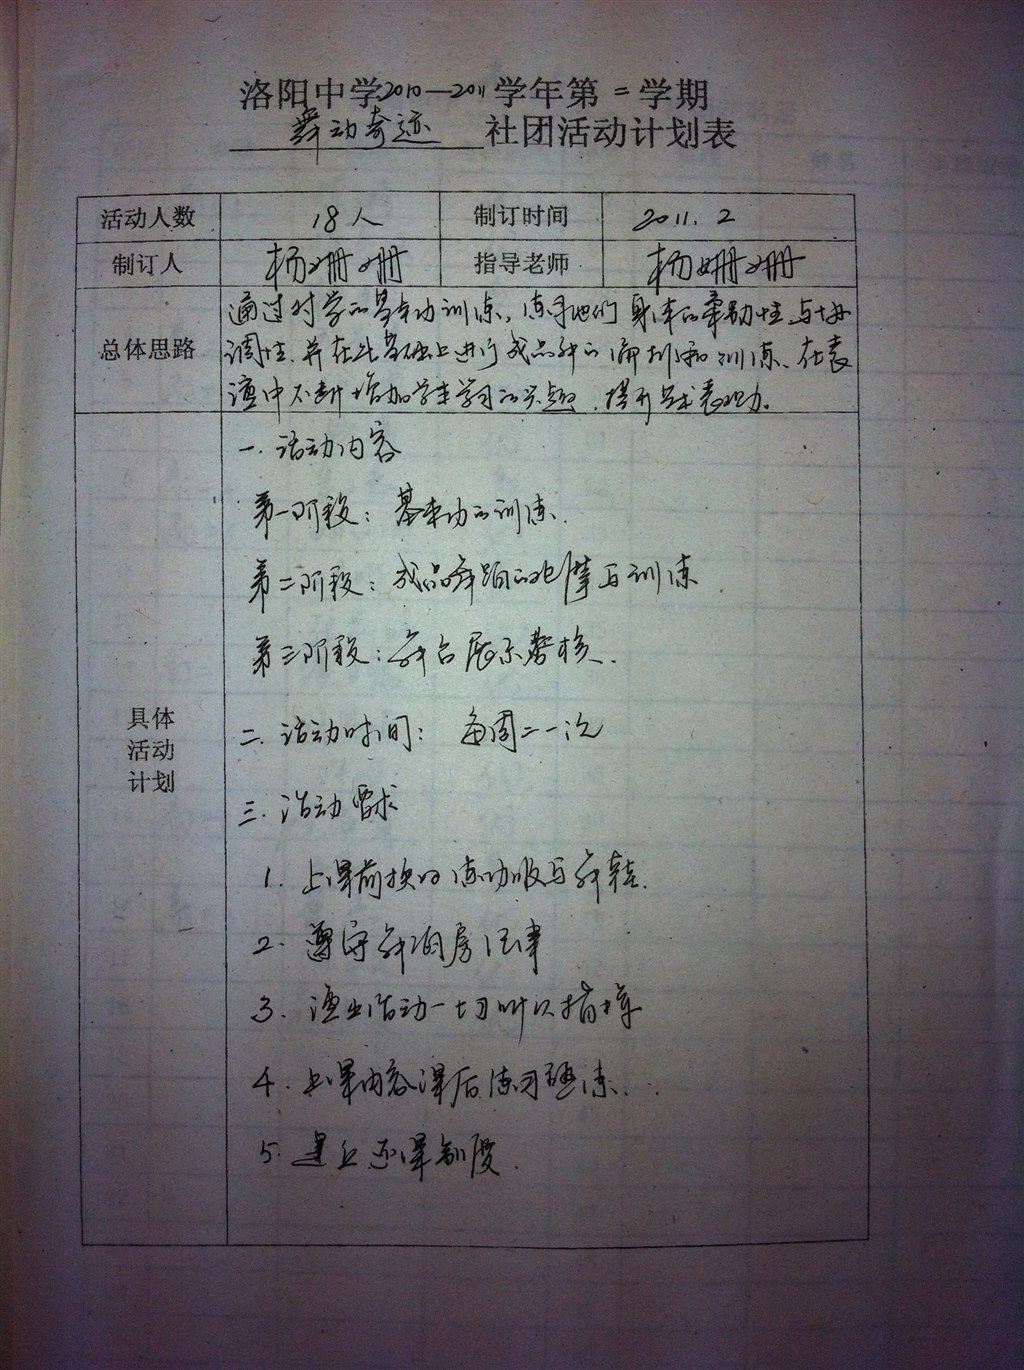 洛阳中学2010—2011学年第二学期
舞动奇迹 社团活动计划表
活动人数 18人 制订时间 2011.2
制订人 杨珊珊 指导老师 杨珊珊
总体思路
通过对学的基本功训练，练习他们身体的柔韧性与协
调性、并在此基础上进行成品舞的编排和训练、在表
演中不断增加学生学习的兴趣、提升艺术表现力。
具体
活动
计划
一.活动内容
第一阶段：基本功的训练.
第二阶段：成品舞蹈的观摩与训练
第三阶段：舞台展示考核.
二.活动时间：每周二一次
三.活动要求
1.上课前换好练功服与舞鞋.
2.遵守舞蹈房纪律
3.演出活动一切听从指挥
4.上课内容课后练习熟练.
5.建立还课制度.